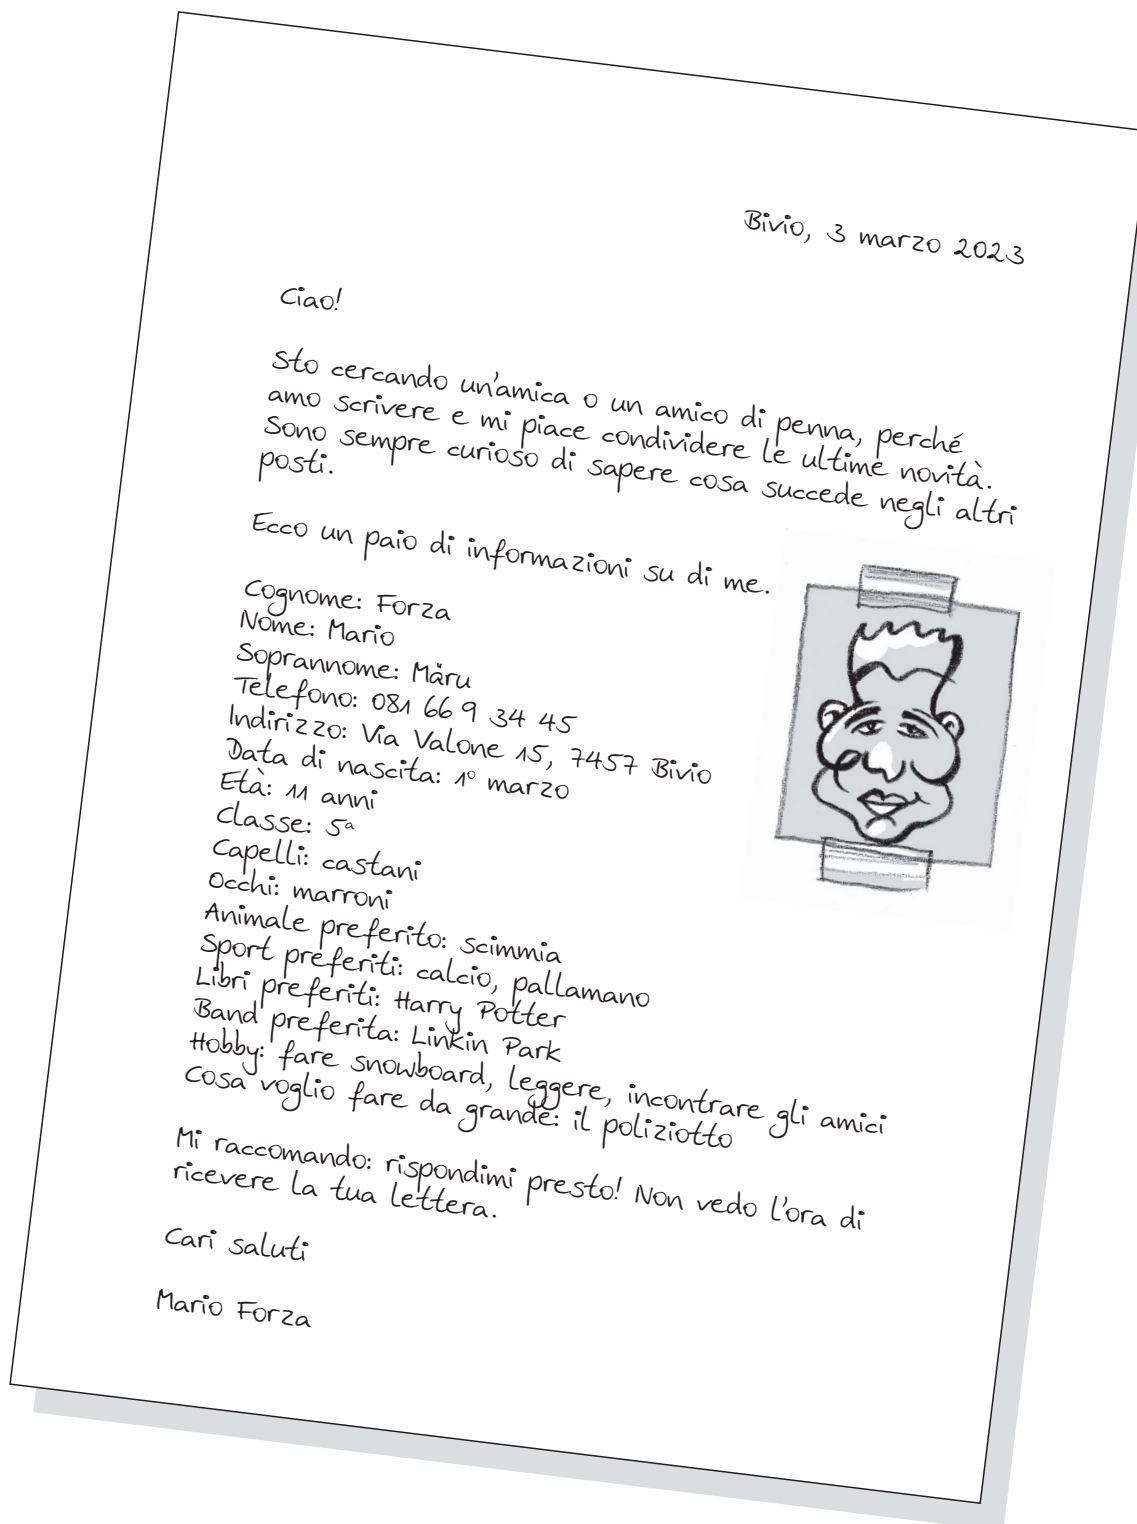 Bivio, 3 marzo 2023
Ciao!
Sto cercando un'amica o un amico di penna, perché
amo scrivere e mi piace condividere le ultime novità.
Sono sempre curioso di sapere cosa succede negli altri
posti.
Ecco un paio di informazioni su di me.
Cognome: Forza
Nome: Mario
Soprannome: Märu
Telefono: 081 66 9 34 45
Indirizzo: Via Valone 15, 7457 Bivio
Data di nascita: 1° marzo
Età: 11 anni
Classe: 5ª
Capelli: castani
Occhi: marroni
Animale preferito: scimmia
Sport preferiti: calcio, pallamano
Libri preferiti: Harry Potter
Band preferita: Linkin Park
Hobby: fare snowboard, leggere, incontrare gli amici
Cosa voglio fare da grande: il poliziotto
Mi raccomando: rispondimi presto! Non vedo l'ora di
ricevere la tua lettera.
Cari saluti
Mario Forza